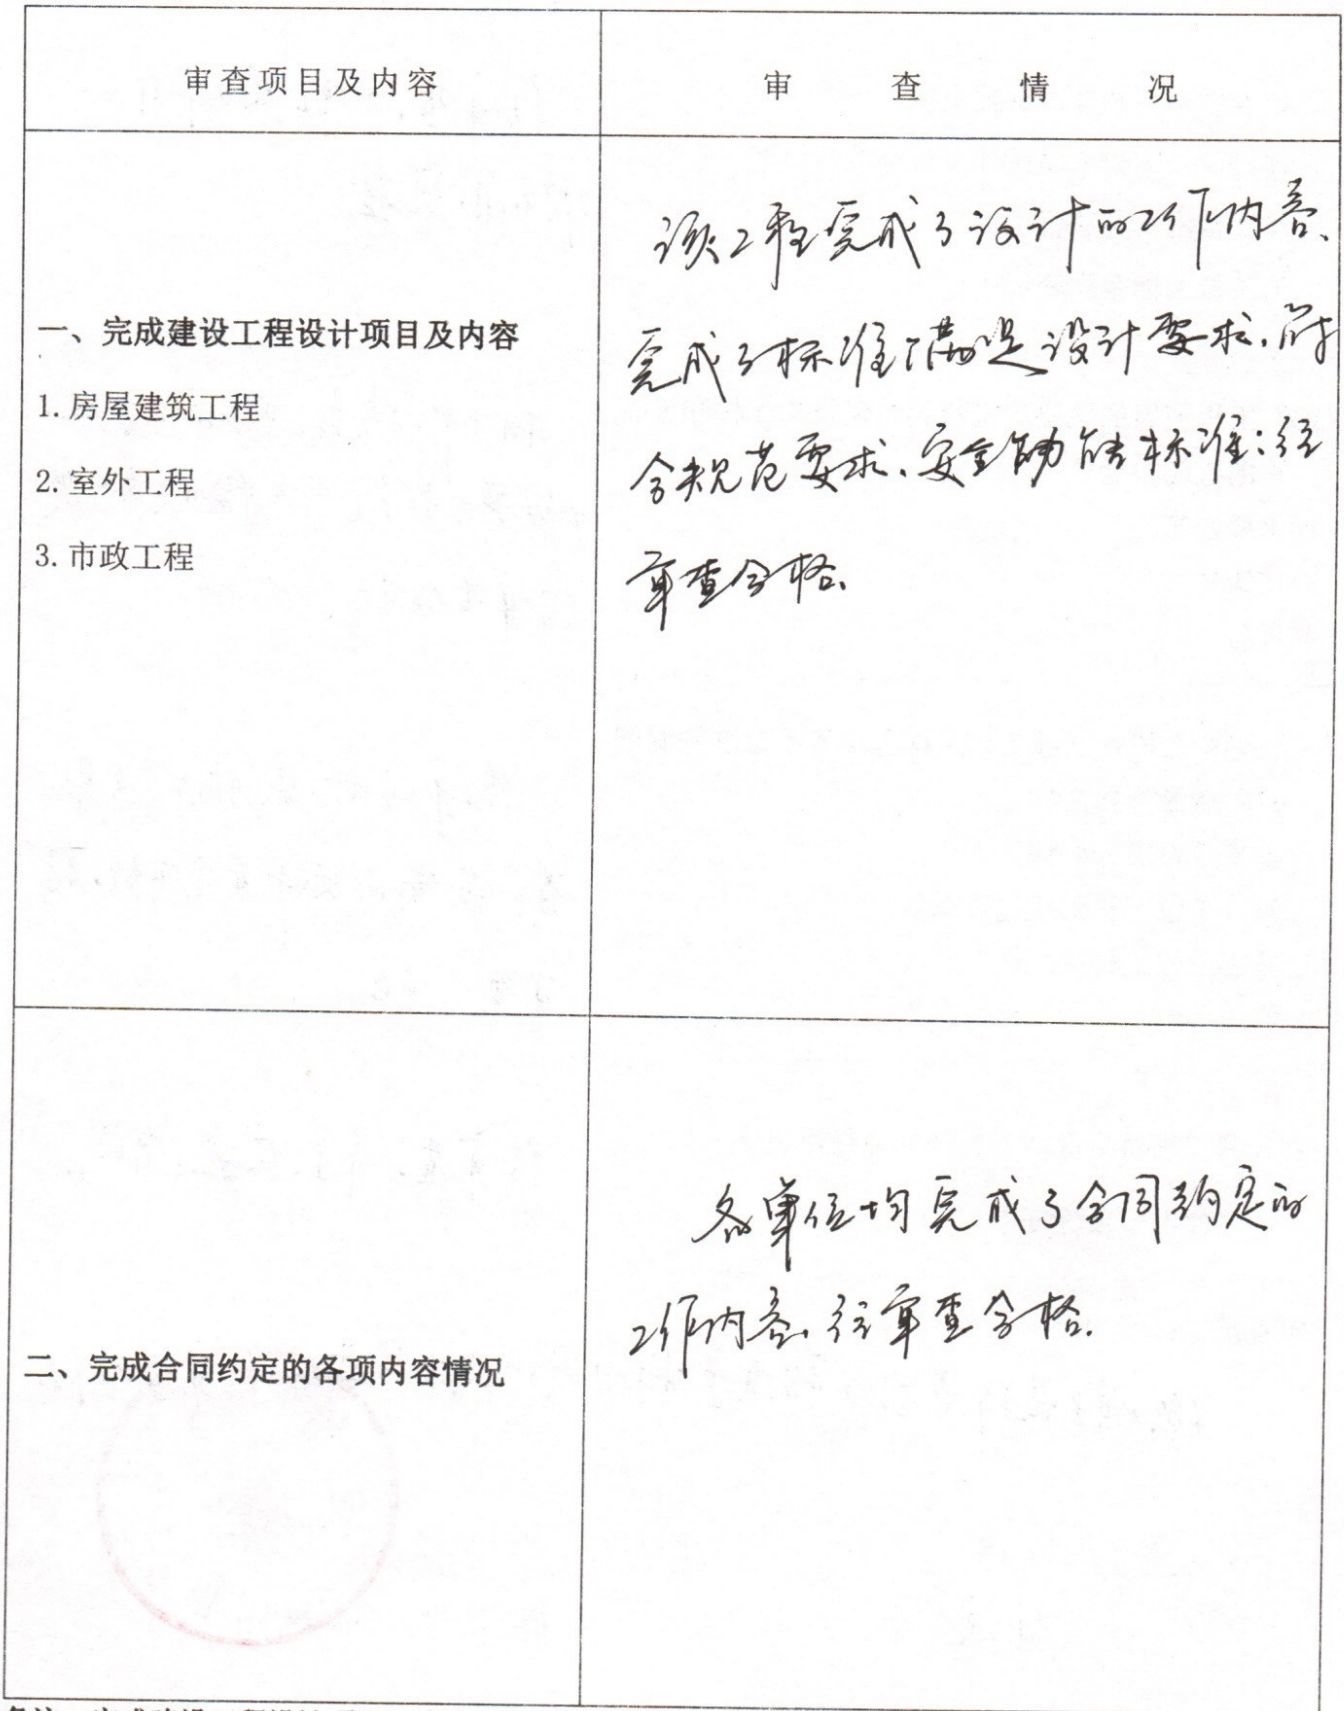 审查项目及内容
审查情况
一、完成建设工程设计项目及内容
1.房屋建筑工程
2.室外工程
3.市政工程
该工程完成了设计的工作内容、
完成了标准满足设计要求、符
合规范要求、安全功能标准;经
审查合格、
二、完成合同约定的各项内容情况
各单位均完成了合同约定的
工作内容、经审查合格.